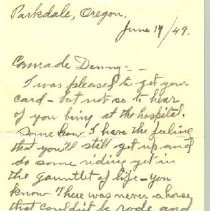 Parkdale, Oregon.
June 19/49.
Comrade Denny:-
I was pleased to get your
card - but not so to hear
of you being at the hospital.
Somehow I have the feeling
that you'll still get up and
do some riding yet in
the gauntlet of life - you
know there was never a horse
that couldn't be rode and